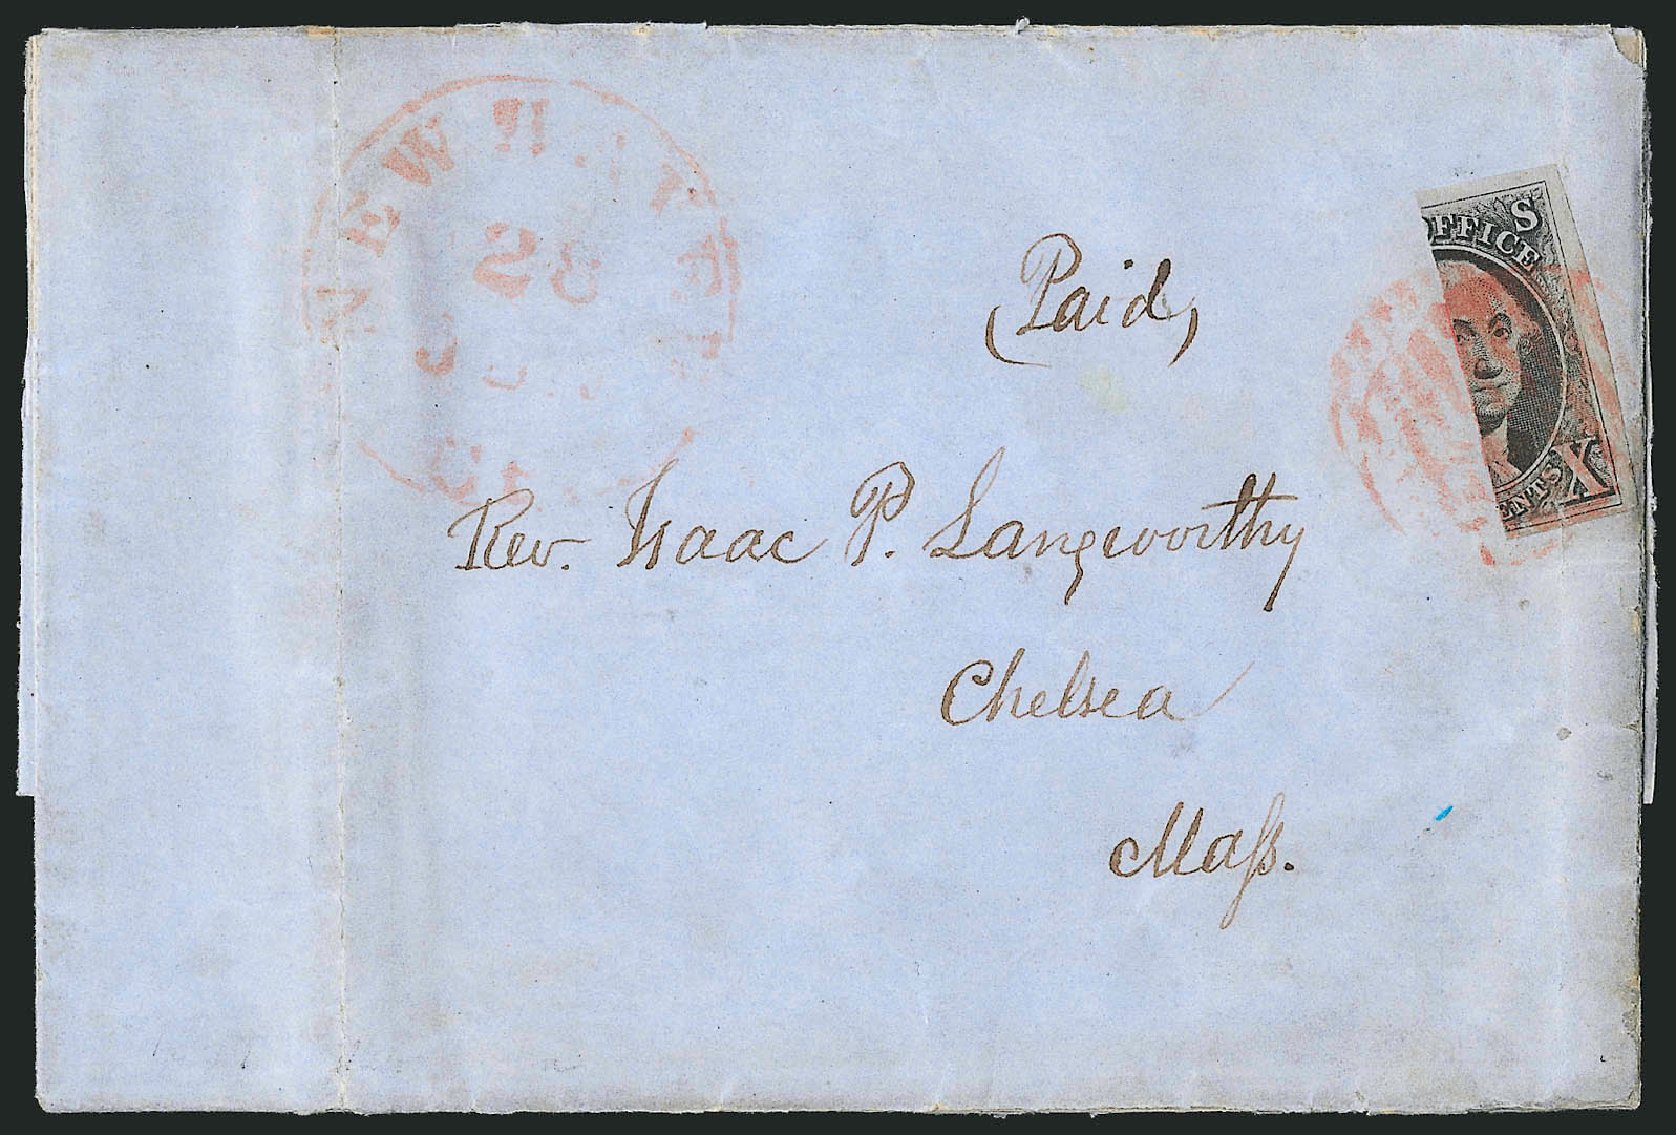 NEW H
28
(Paid)
OFFICE
S
CENTS
X
Rev. Isaac P. Langworthy
Chelsea
Maſs.